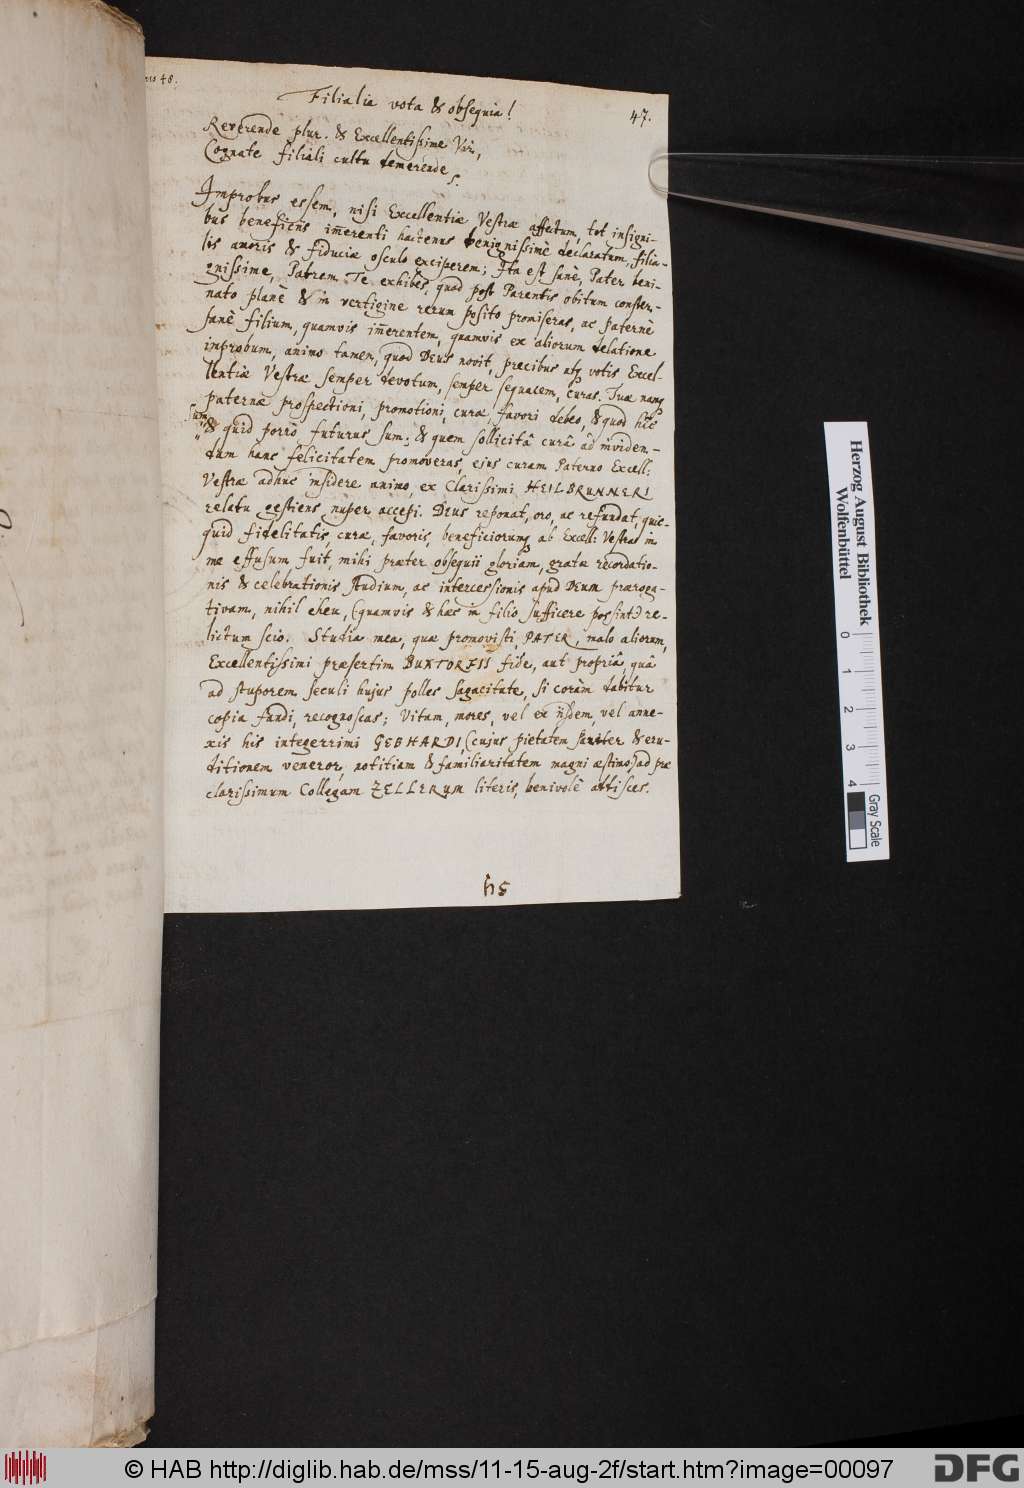 48.
47.
Filialia vota & obsequia!
Reverende plur. & Excellentissime Vir,
Cognate filiali cultu demerende
S.
Improbus essem, nisi Excellentiæ Vestræ affectum, tot insigni-
bus beneficiis im̅erenti hactenus benignissimè declaratum, filia-
lis amoris & fiduciæ osculo exciperem; Ita est sanè, Pater beni-
gnissime, Patrem Te exhibes, quod post Parentis obitum conster-
nato planè & in vertigine rerum posito promiseras, ac paternè
sanè filium, quamvis im̅erentem, quamvis ex aliorum delatione
improbum, animo tamen, quod DEUS novit, precibus atq; votis Excel-
lentiæ Vestræ semper devotum, semper sequacem, curas. Tuæ namq;
paternæ prospectioni, promotioni, curæ, favori debeo, & quod hîc
sum,
& quid porrò futurus sum; & quem sollicitâ curâ ad inviden-
dum hanc felicitatem promoveras, ejus curam Paterno Excell:
Vestræ adhuc insidere animo, ex Clarissimi HEILBRUNNERI
relatu gestiens nuper accepi. Deus reponat, oro, ac refundat, quic-
quid fidelitatis, curæ, favoris, beneficiorumq; ab Excell: Vestra in
me effusum fuit, mihi præter obsequii gloriam, gratæ recordatio-
nis & celebrationis studium, ac intercessionis apud DEUM præroga-
tivam, nihil eheu, (quamvis & hæc in filio sufficere possint) re-
lictum scio. Studia mea, quæ promovisti, PATER, malo aliorum,
Excellentissimi præsertim BUXTORFII fide, aut propriâ, quâ
ad stuporem seculi hujus polles sagacitate, si coràm dabitur
copia fandi, recognoscas; Vitam, mores, vel ex iisdem, vel anne-
xis his integerrimi GEBHARDI, (cujus pietatem & eru-
ditionem veneror, notitiam & familiaritatem magni æstimo) ad præ
clarissimum Collegam ZELLERUM literis, benivolè addisces.
Herzog August Bibliothek
Wolfenbüttel
0 1 2 3 4
Gray Scale
© HAB http://diglib.hab.de/mss/11-15-aug-2f/start.htm?image=00097
DFG